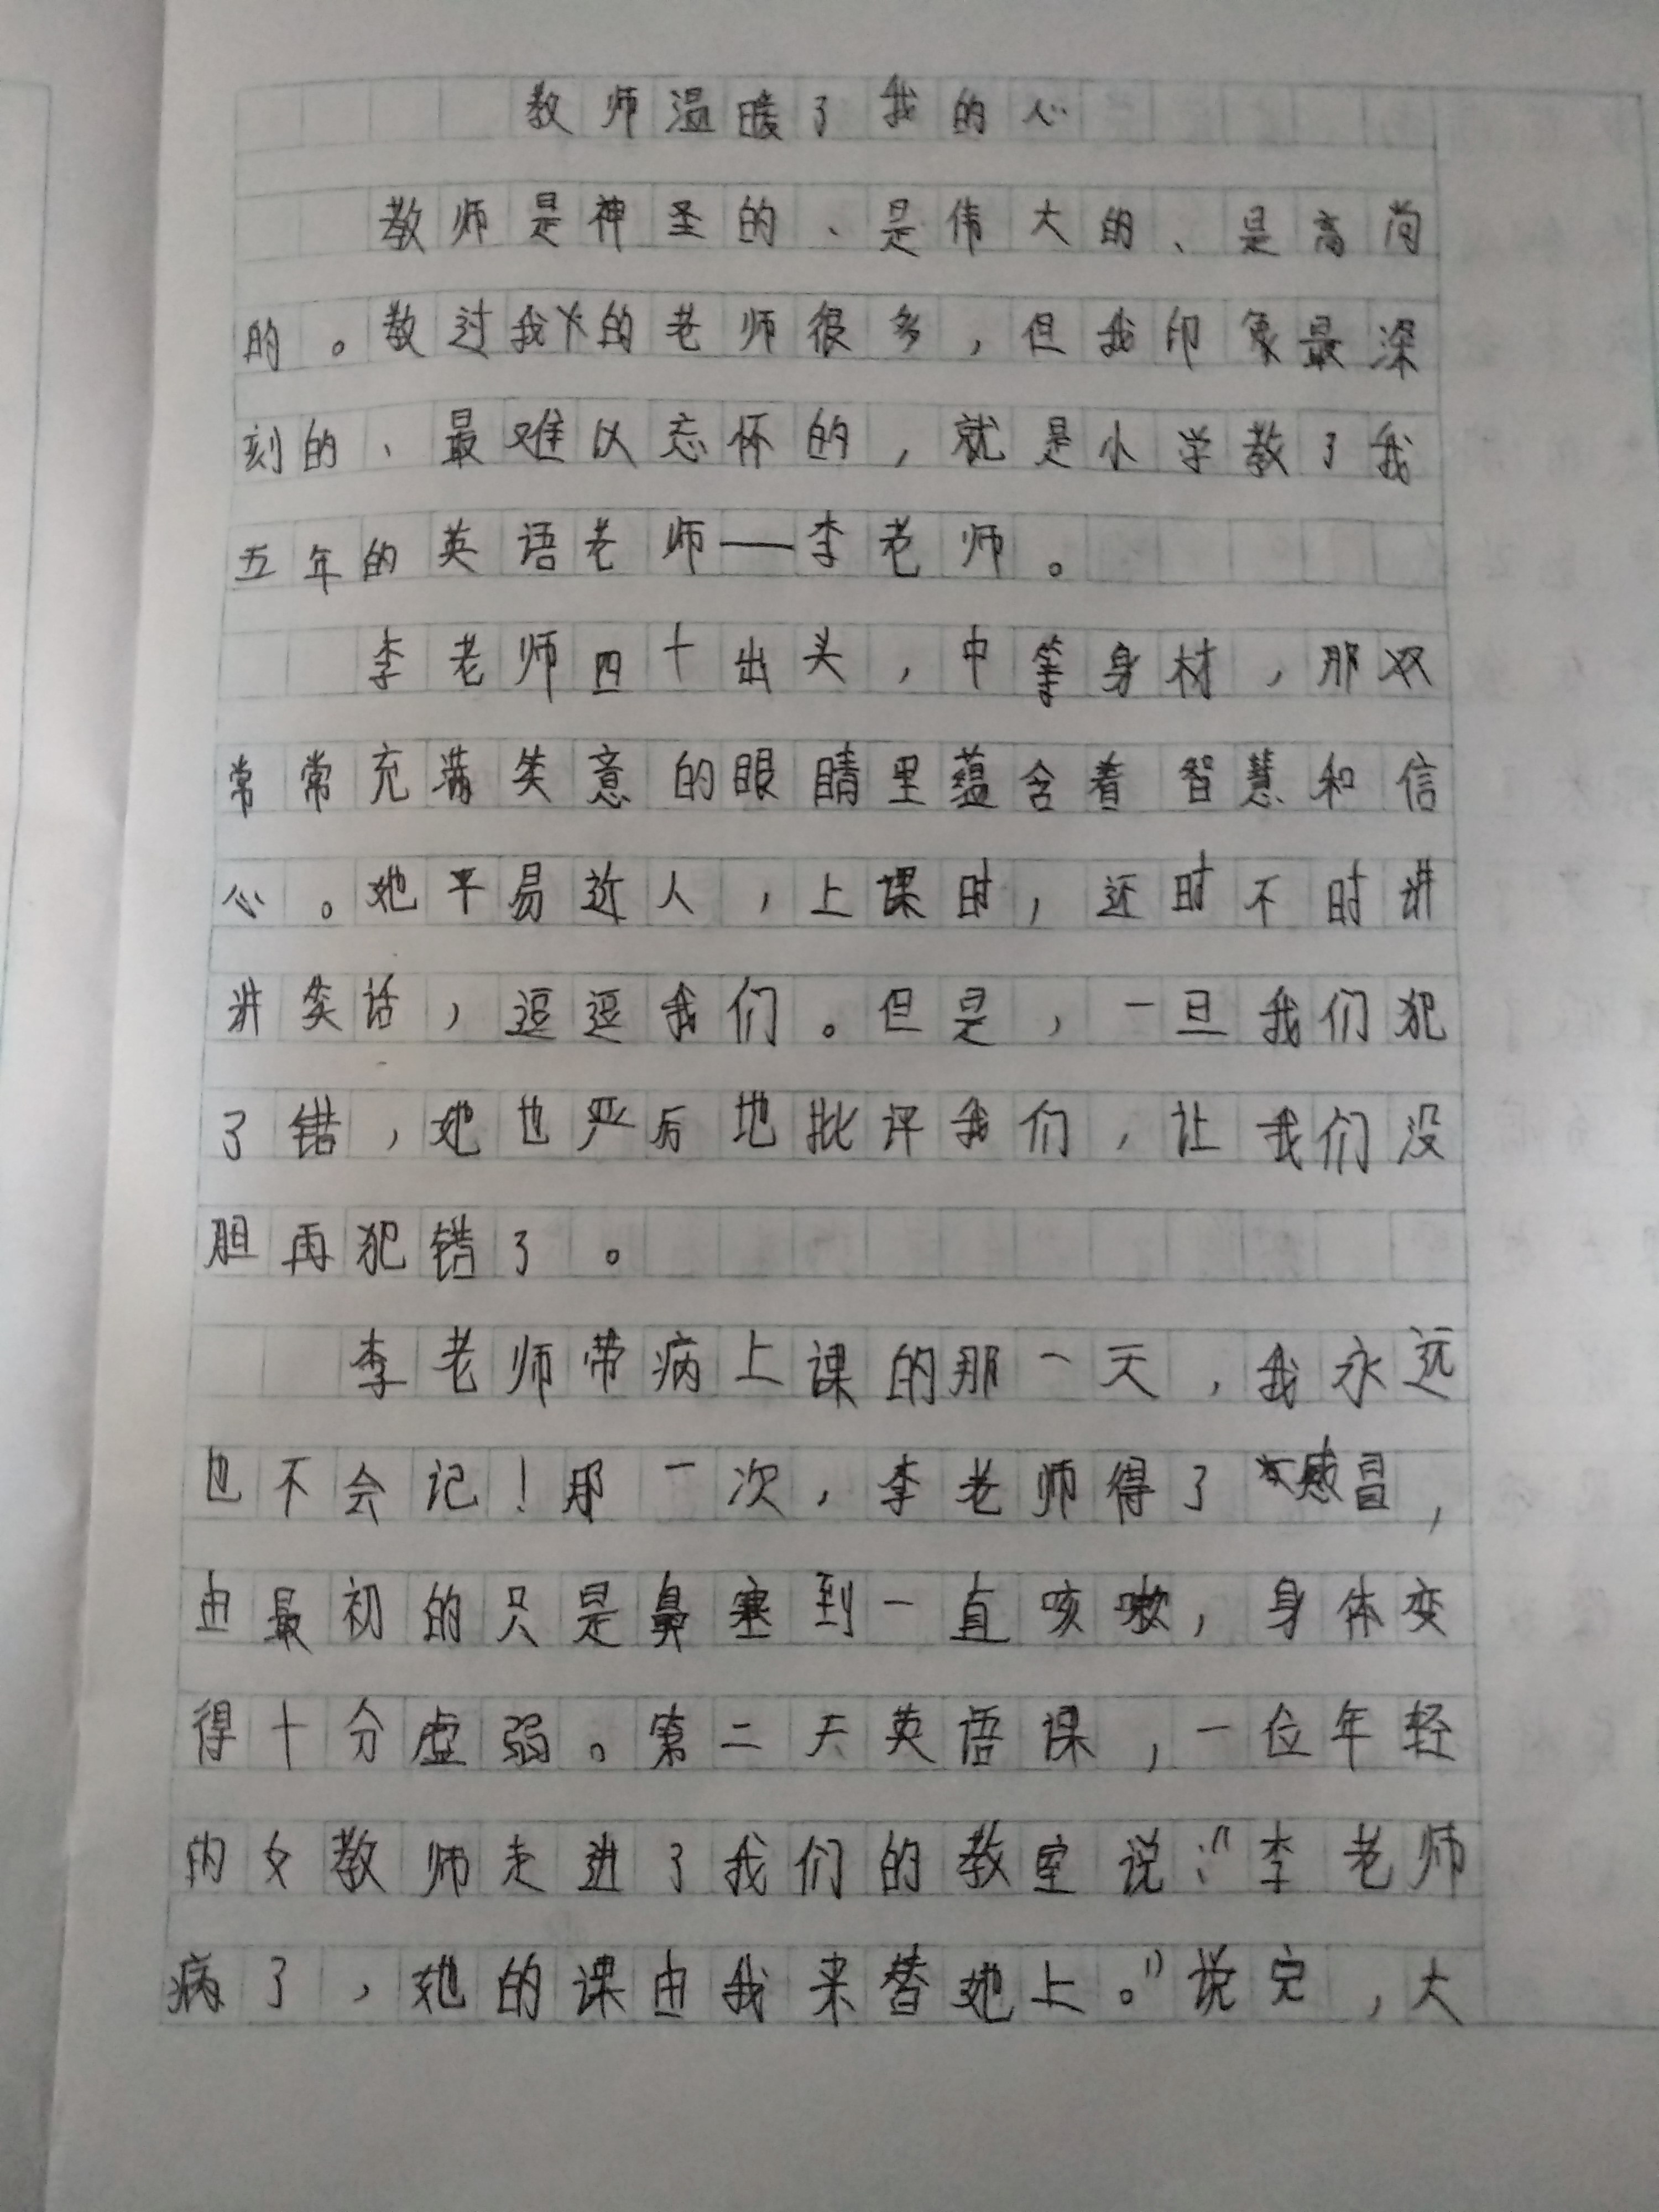 教师温暖了我的心
教师是神圣的、是伟大的、是高尚
的。教过我的老师很多，但我印象最深
刻的、最难以忘怀的，就是小学教了我
五年的英语老师——李老师。
李老师四十出头，中等身材，那双
常常充满笑意的眼睛里蕴含着智慧和信
心。她平易近人，上课时，还时不时讲
讲笑话，逗逗我们。但是，一旦我们犯
了错，她也严厉地批评我们，让我们没
胆再犯错了。
李老师带病上课的那一天，我永远
也不会记！那一次，李老师得了感冒，
由最初的只是鼻塞到一直咳嗽，身体变
得十分虚弱。第二天英语课，一位年轻
的女教师走进了我们的教室说：“李老师
病了，她的课由我来替她上。”说完，大